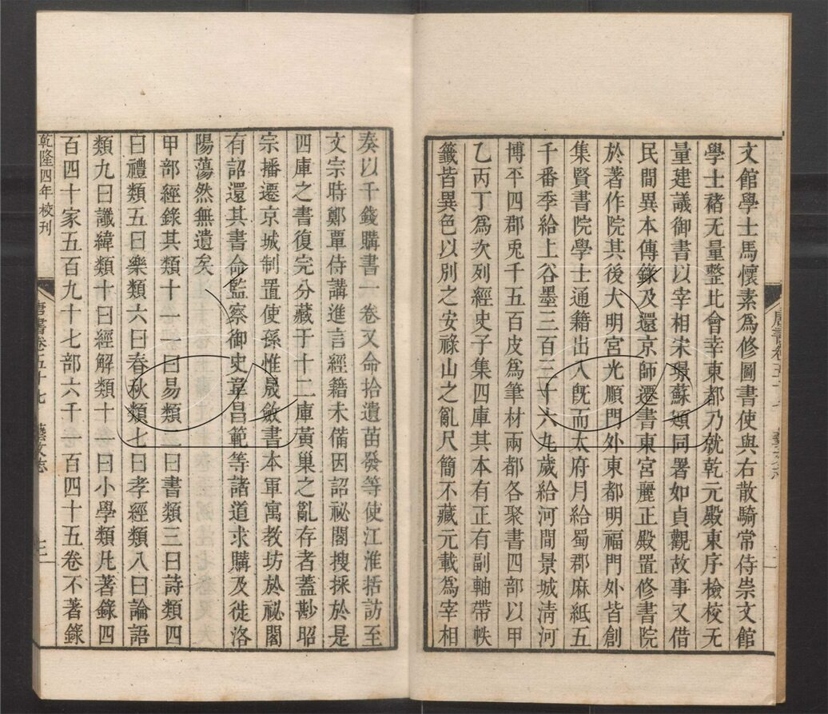 文館學士馬懷素爲修圖書使與右散騎常侍崇文館
學士禇无量整比會幸東都乃就乾元殿東序檢校无
量建議御書以宰相宋璟蘇頲同署如貞觀故事又借
民間異本傳錄及還京師遷書東宮麗正殿置修書院
於著作院其後大明宮光順門外東都明福門外皆創
集賢書院學士通籍出入旣而太府月給蜀郡麻紙五
千番季給上谷墨三百三十六丸歲給河間景城淸河
博平四郡兎千五百皮爲筆材兩都各聚書四部以甲
乙丙丁爲次列經史子集四庫其本有正有副軸帶帙
籤皆異色以別之安祿山之亂尺簡不藏元載爲宰相
奏以千錢購書一卷又命拾遺苗發等使江淮括訪至
文宗時鄭覃侍講進言經籍未備因詔祕閣搜採於是
四庫之書復完分藏于十二庫黃巢之亂存者蓋尠昭
宗播遷京城制置使孫惟晟斂書本軍寓教坊於祕閣
有詔還其書命監察御史韋昌範等諸道求購及徙洛
陽蕩然無遺矣
甲部經錄其類十一一曰易類二曰書類三曰詩類四
曰禮類五曰樂類六曰春秋類七曰孝經類八曰論語
類九曰讖緯類十曰經解類十一曰小學類凡著錄四
百四十家五百九十七部六千一百四十五卷不著錄
乾隆四年校刊
唐書卷五十七 藝文志